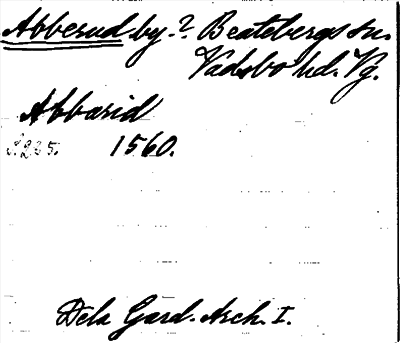 Abberud by? Beatebergs sn.
Vadsbo hd. Vg.
Abbarid
S. 265. 1560.
Dela Gard. Arch. I.